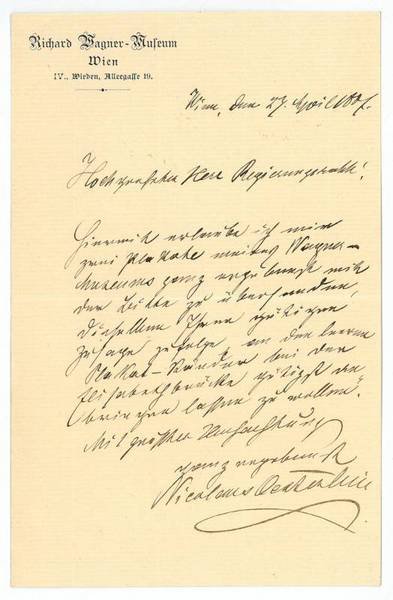 Richard Wagner-Museum
Wien
IV., Wieden, Alleegasse 19.
Wien, den 27. April 1887.
Hochverehrter Herr Regierungsrath!
Hiermit erlaube ich mir
zwei Plakate meines Wagner-
Museums ganz ergebenst mit
der Bitte zu übersenden,
dieselben Ihrer gütigen
Zusage zufolge an den leeren
Plakat-Ständer bei der
Elisabethbrücke gütigst an
bringen lassen zu wollen.
Mit größter Hochachtung
ganz ergebenst
Nicolaus Oesterlein